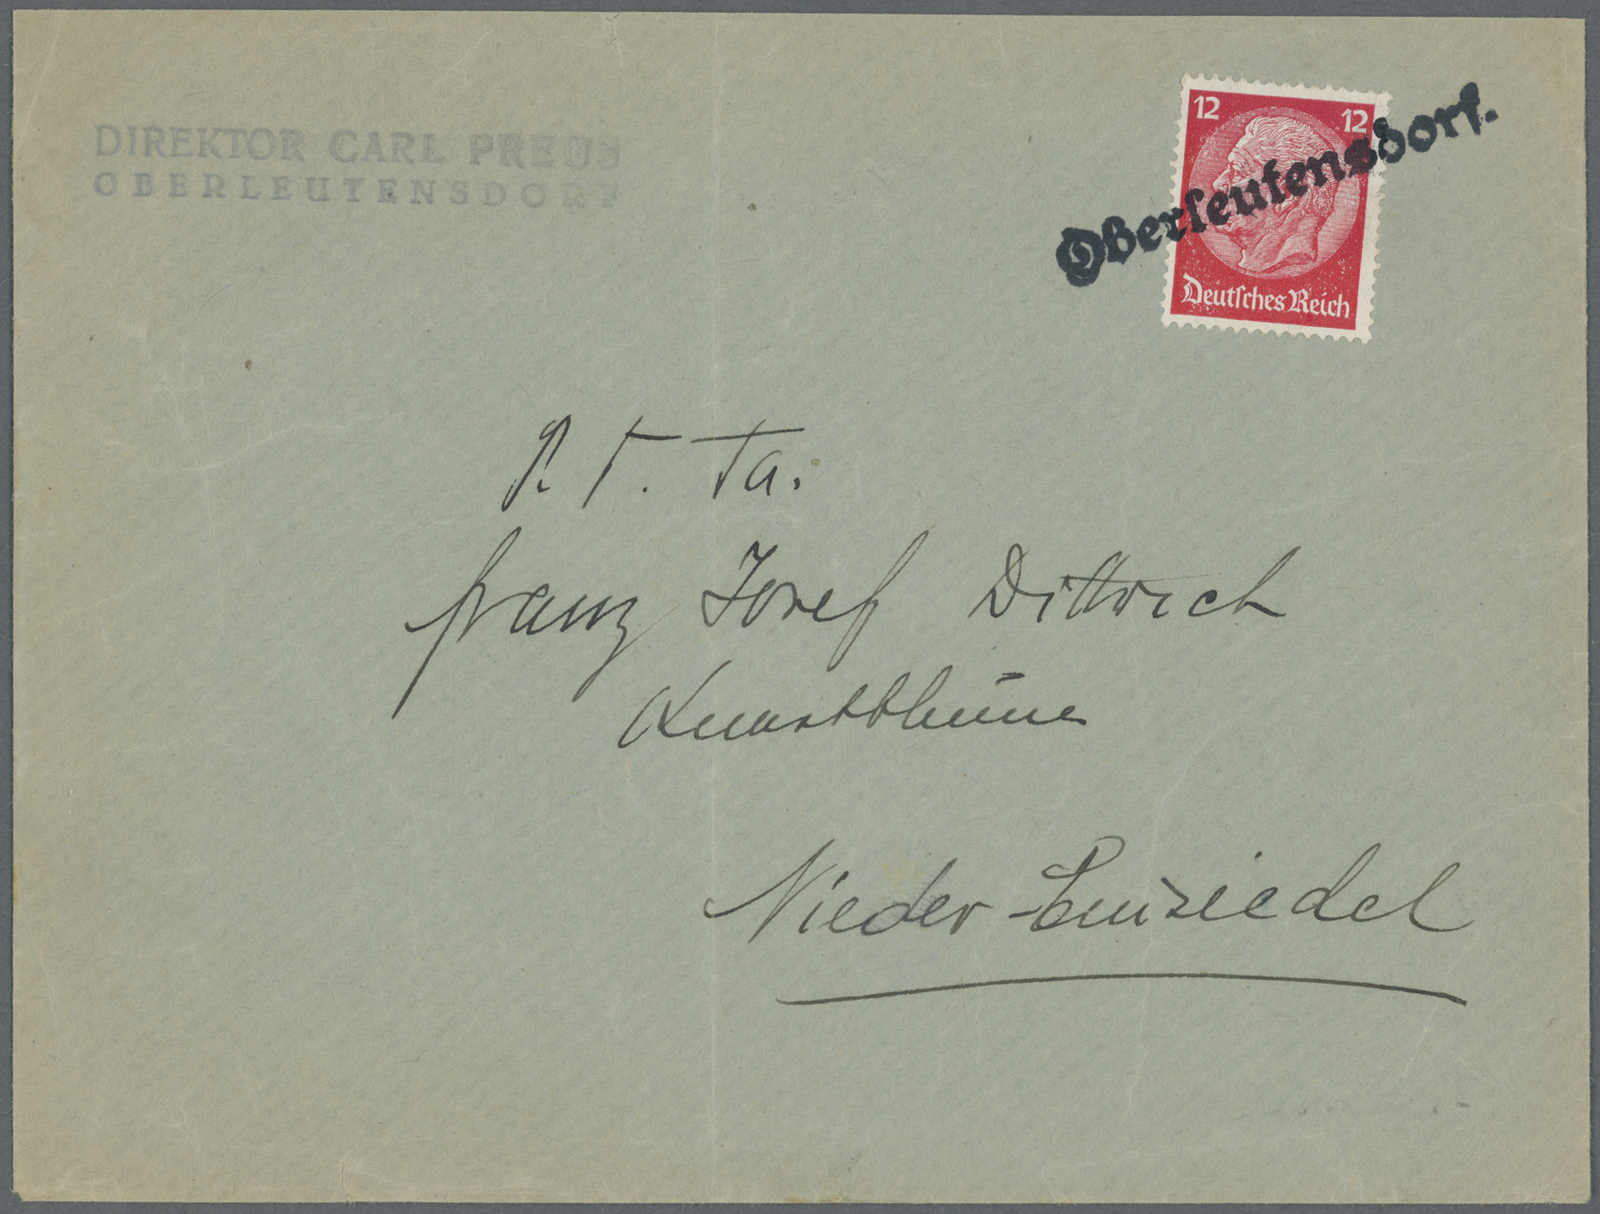 DIREKTOR CARL PREUS
OBERLEUTENSDORF
12 12
Oberleutensdorf.
Deutsches Reich
P. T. Fa.
Franz Josef Dittrich
Kunstblumen
Nieder-Einsiedel